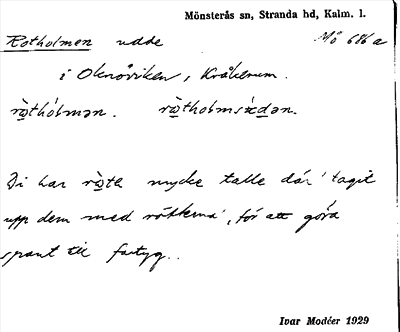 Mönsterås sn, Stranda hd, Kalm. l.
Rotholmen udde Mö 686a
i Oknöviken, Kråkerum.
Di har röth mycke talle där 'tagit
upp dem med rötterna', för att göra
spant till fartyg.
Ivar Modéer 1929